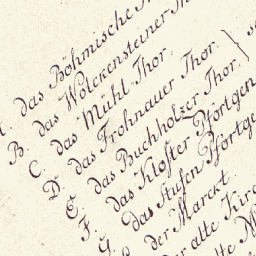 das Böhmische
B. das Wolckensteiner Th
C das Mühl Thor.
D. das Frohnauer Thor.
E. das Buchholzer Thor.
F. das Kloster Pfortgen
G. das Stufen Pfortge
der Marckt.
der alte Kirc